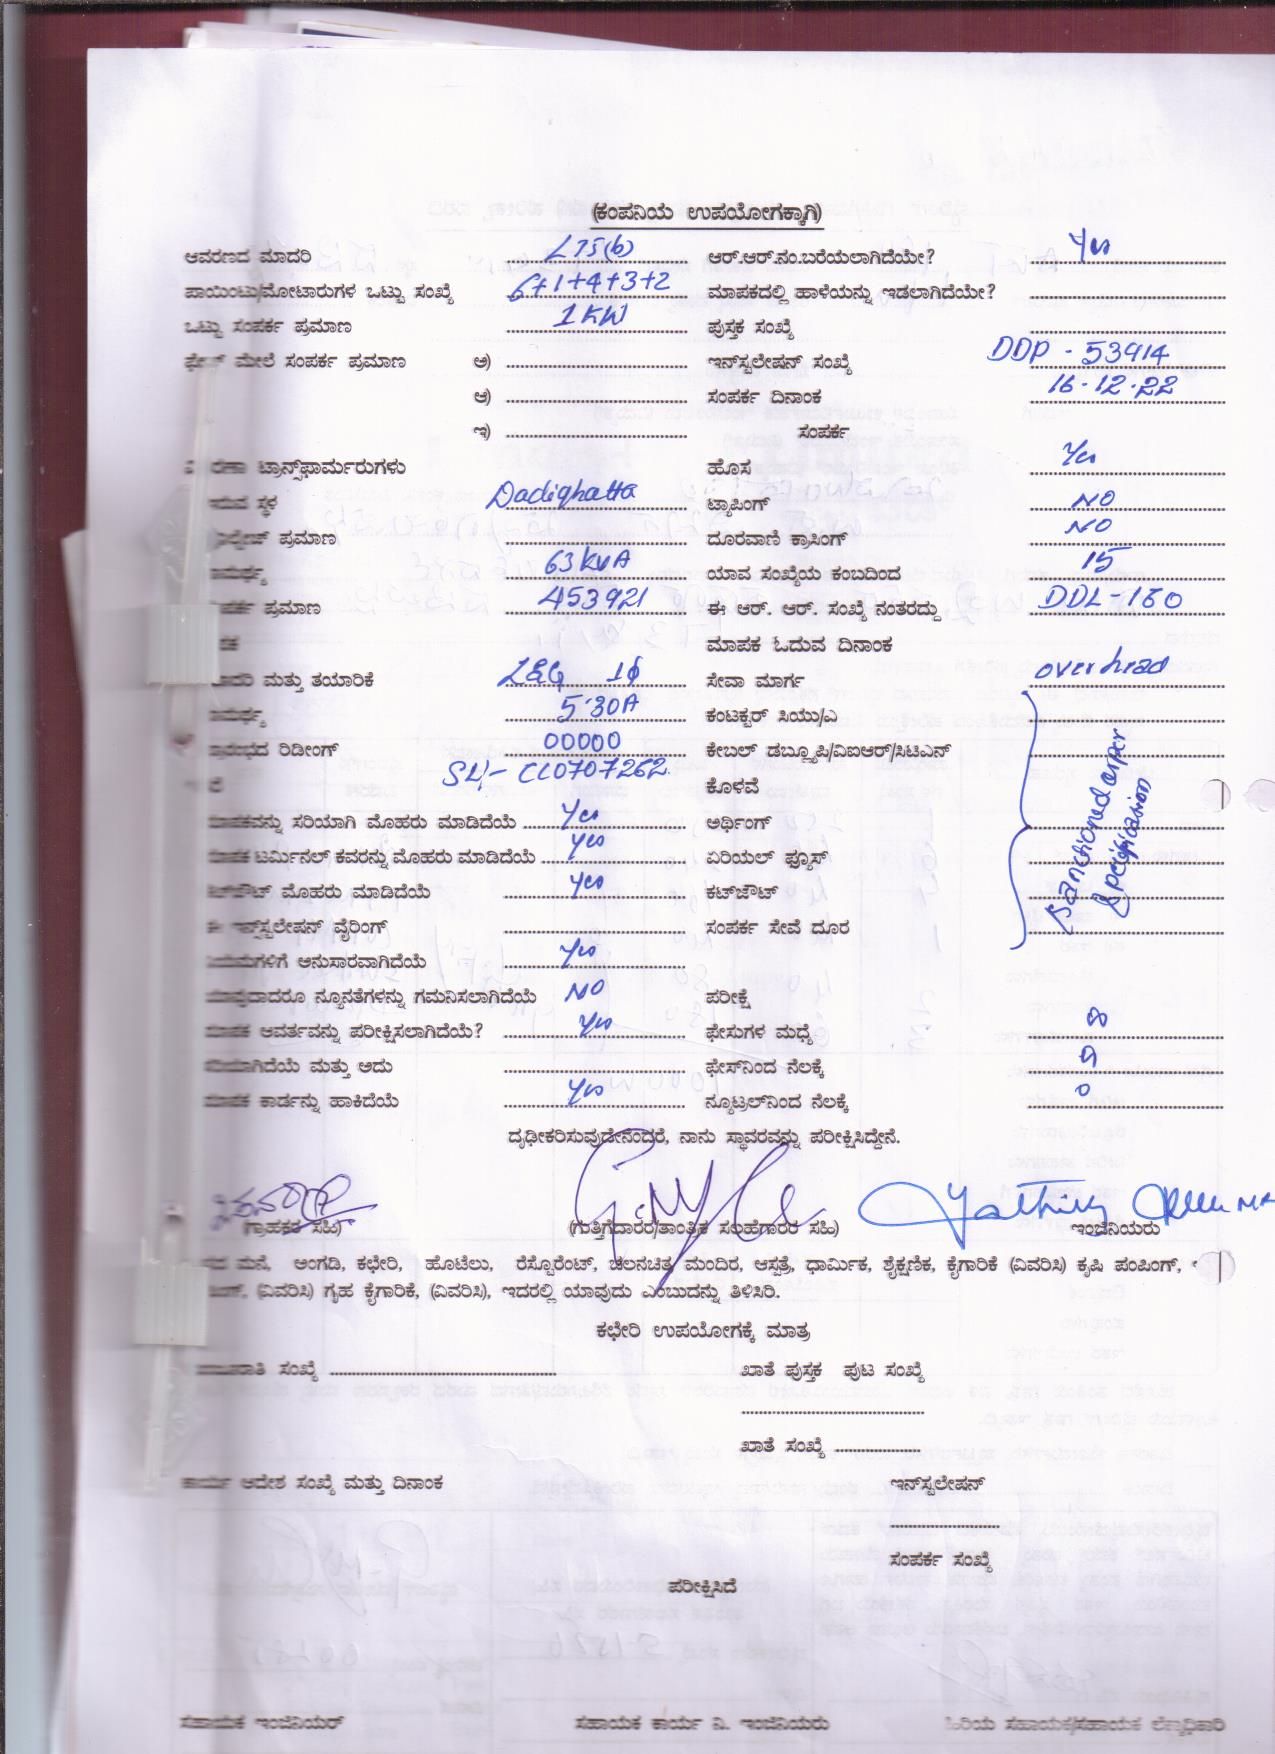 (ಕಂಪನಿಯ ಉಪಯೋಗಕ್ಕಾಗಿ)
ಆವರಣದ ಮಾದರಿ LT5(b) ಆರ್.ಆರ್.ನಂ.ಬರೆಯಲಾಗಿದೆಯೇ? Yes
ಪಾಯಿಂಟು/ಮೋಟಾರುಗಳ ಒಟ್ಟು ಸಂಖ್ಯೆ 6+1+4+3+2 ಮಾಪಕದಲ್ಲಿ ಹಾಳೆಯನ್ನು ಇಡಲಾಗಿದೆಯೇ?
ಒಟ್ಟು ಸಂಪರ್ಕ ಪ್ರಮಾಣ 1KW ಪುಸ್ತಕ ಸಂಖ್ಯೆ
ಮೇಲೆ ಸಂಪರ್ಕ ಪ್ರಮಾಣ ಅ) ಇನ್‌ಸ್ಟಲೇಷನ್ ಸಂಖ್ಯೆ DDP - 53914
ಆ) ಸಂಪರ್ಕ ದಿನಾಂಕ 16.12.22
ಇ) ಸಂಪರ್ಕ
ಟ್ರಾನ್ಸ್‌ಫಾರ್ಮರುಗಳು ಹೊಸ Yes
ಸ್ಥಳ Dadighatta ಟ್ಯಾಪಿಂಗ್ NO
ಪ್ರಮಾಣ ದೂರವಾಣಿ ಕ್ರಾಸಿಂಗ್ NO
63KVA ಯಾವ ಸಂಖ್ಯೆಯ ಕಂಬದಿಂದ 15
ಪ್ರಮಾಣ 453921 ಈ ಆರ್. ಆರ್. ಸಂಖ್ಯೆ ನಂತರದ್ದು DDL-160
ಮಾಪಕ ಓದುವ ದಿನಾಂಕ
ಮತ್ತು ತಯಾರಿಕೆ L&G 1ϕ ಸೇವಾ ಮಾರ್ಗ overhead
5-30A ಕಂಟಕ್ಟರ್ ಸಿಯು/ಎ
ರಿಡೀಂಗ್ 00000 ಕೇಬಲ್ ಡಬ್ಲ್ಯೂಪಿ/ವಿಐಆರ್/ಸಿಟಿಎನ್
SL/- CL0707262 ಕೊಳವೆ
ಸರಿಯಾಗಿ ಮೊಹರು ಮಾಡಿದೆಯೆ Yes ಅರ್ಥಿಂಗ್
ಮಾಪಕ ಟರ್ಮಿನಲ್ ಕವರನ್ನು ಮೊಹರು ಮಾಡಿದೆಯೆ Yes ಏರಿಯಲ್ ಫ್ಯೂಸ್
ಮೊಹರು ಮಾಡಿದೆಯೆ Yes ಕಟ್‌ಔಟ್
ಇನ್‌ಸ್ಟಲೇಷನ್ ವೈರಿಂಗ್ ಸಂಪರ್ಕ ಸೇವೆ ದೂರ
Sanctioned as per
Specification
ನಿಯಮಗಳಿಗೆ ಅನುಸಾರವಾಗಿದೆಯೆ Yes
ಯಾವುದಾದರೂ ನ್ಯೂನತೆಗಳನ್ನು ಗಮನಿಸಲಾಗಿದೆಯೆ NO ಪರೀಕ್ಷೆ
ಮಾಪಕ ಆವರ್ತವನ್ನು ಪರೀಕ್ಷಿಸಲಾಗಿದೆಯೆ? Yes ಫೇಸುಗಳ ಮಧ್ಯೆ
ಸರಿಯಾಗಿದೆಯೆ ಮತ್ತು ಅದು ಫೇಸ್‌ನಿಂದ ನೆಲಕ್ಕೆ
ಮಾಪಕ ಕಾರ್ಡನ್ನು ಹಾಕಿದೆಯೆ Yes ನ್ಯೂಟ್ರಲ್‌ನಿಂದ ನೆಲಕ್ಕೆ 0
ದೃಢೀಕರಿಸುವುದೇನೆಂದರೆ, ನಾನು ಸ್ಥಾವರವನ್ನು ಪರೀಕ್ಷಿಸಿದ್ದೇನೆ.
(ಗ್ರಾಹಕರ ಸಹಿ) (ಗುತ್ತಿಗೆದಾರರ/ತಾಂತ್ರಿಕ ಸಲಹೆಗಾರರ ಸಹಿ) ಇಂಜಿನಿಯರು
ಮನೆ, ಅಂಗಡಿ, ಕಛೇರಿ, ಹೊಟೆಲು, ರೆಸ್ಟೊರೆಂಟ್, ಚಲನಚಿತ್ರ ಮಂದಿರ, ಆಸ್ಪತ್ರೆ, ಧಾರ್ಮಿಕ, ಶೈಕ್ಷಣಿಕ, ಕೈಗಾರಿಕೆ (ವಿವರಿಸಿ) ಕೃಷಿ ಪಂಪಿಂಗ್,
(ವಿವರಿಸಿ) ಗೃಹ ಕೈಗಾರಿಕೆ, (ವಿವರಿಸಿ), ಇದರಲ್ಲಿ ಯಾವುದು ಎಂಬುದನ್ನು ತಿಳಿಸಿರಿ.
ಕಛೇರಿ ಉಪಯೋಗಕ್ಕೆ ಮಾತ್ರ
ಸಂಖ್ಯೆ ಖಾತೆ ಪುಸ್ತಕ ಪುಟ ಸಂಖ್ಯೆ
ಖಾತೆ ಸಂಖ್ಯೆ
ಕಾರ್ಯ ಆದೇಶ ಸಂಖ್ಯೆ ಮತ್ತು ದಿನಾಂಕ ಇನ್‌ಸ್ಟಲೇಷನ್
ಸಂಪರ್ಕ ಸಂಖ್ಯೆ
ಪರೀಕ್ಷಿಸಿದೆ
ಸಹಾಯಕ ಇಂಜಿನಿಯರ್ ಸಹಾಯಕ ಕಾರ್ಯ ನಿ. ಇಂಜಿನಿಯರು ಹಿರಿಯ ಸಹಾಯಕ/ಸಹಾಯಕ ಲೆಕ್ಕಾಧಿಕಾರಿ